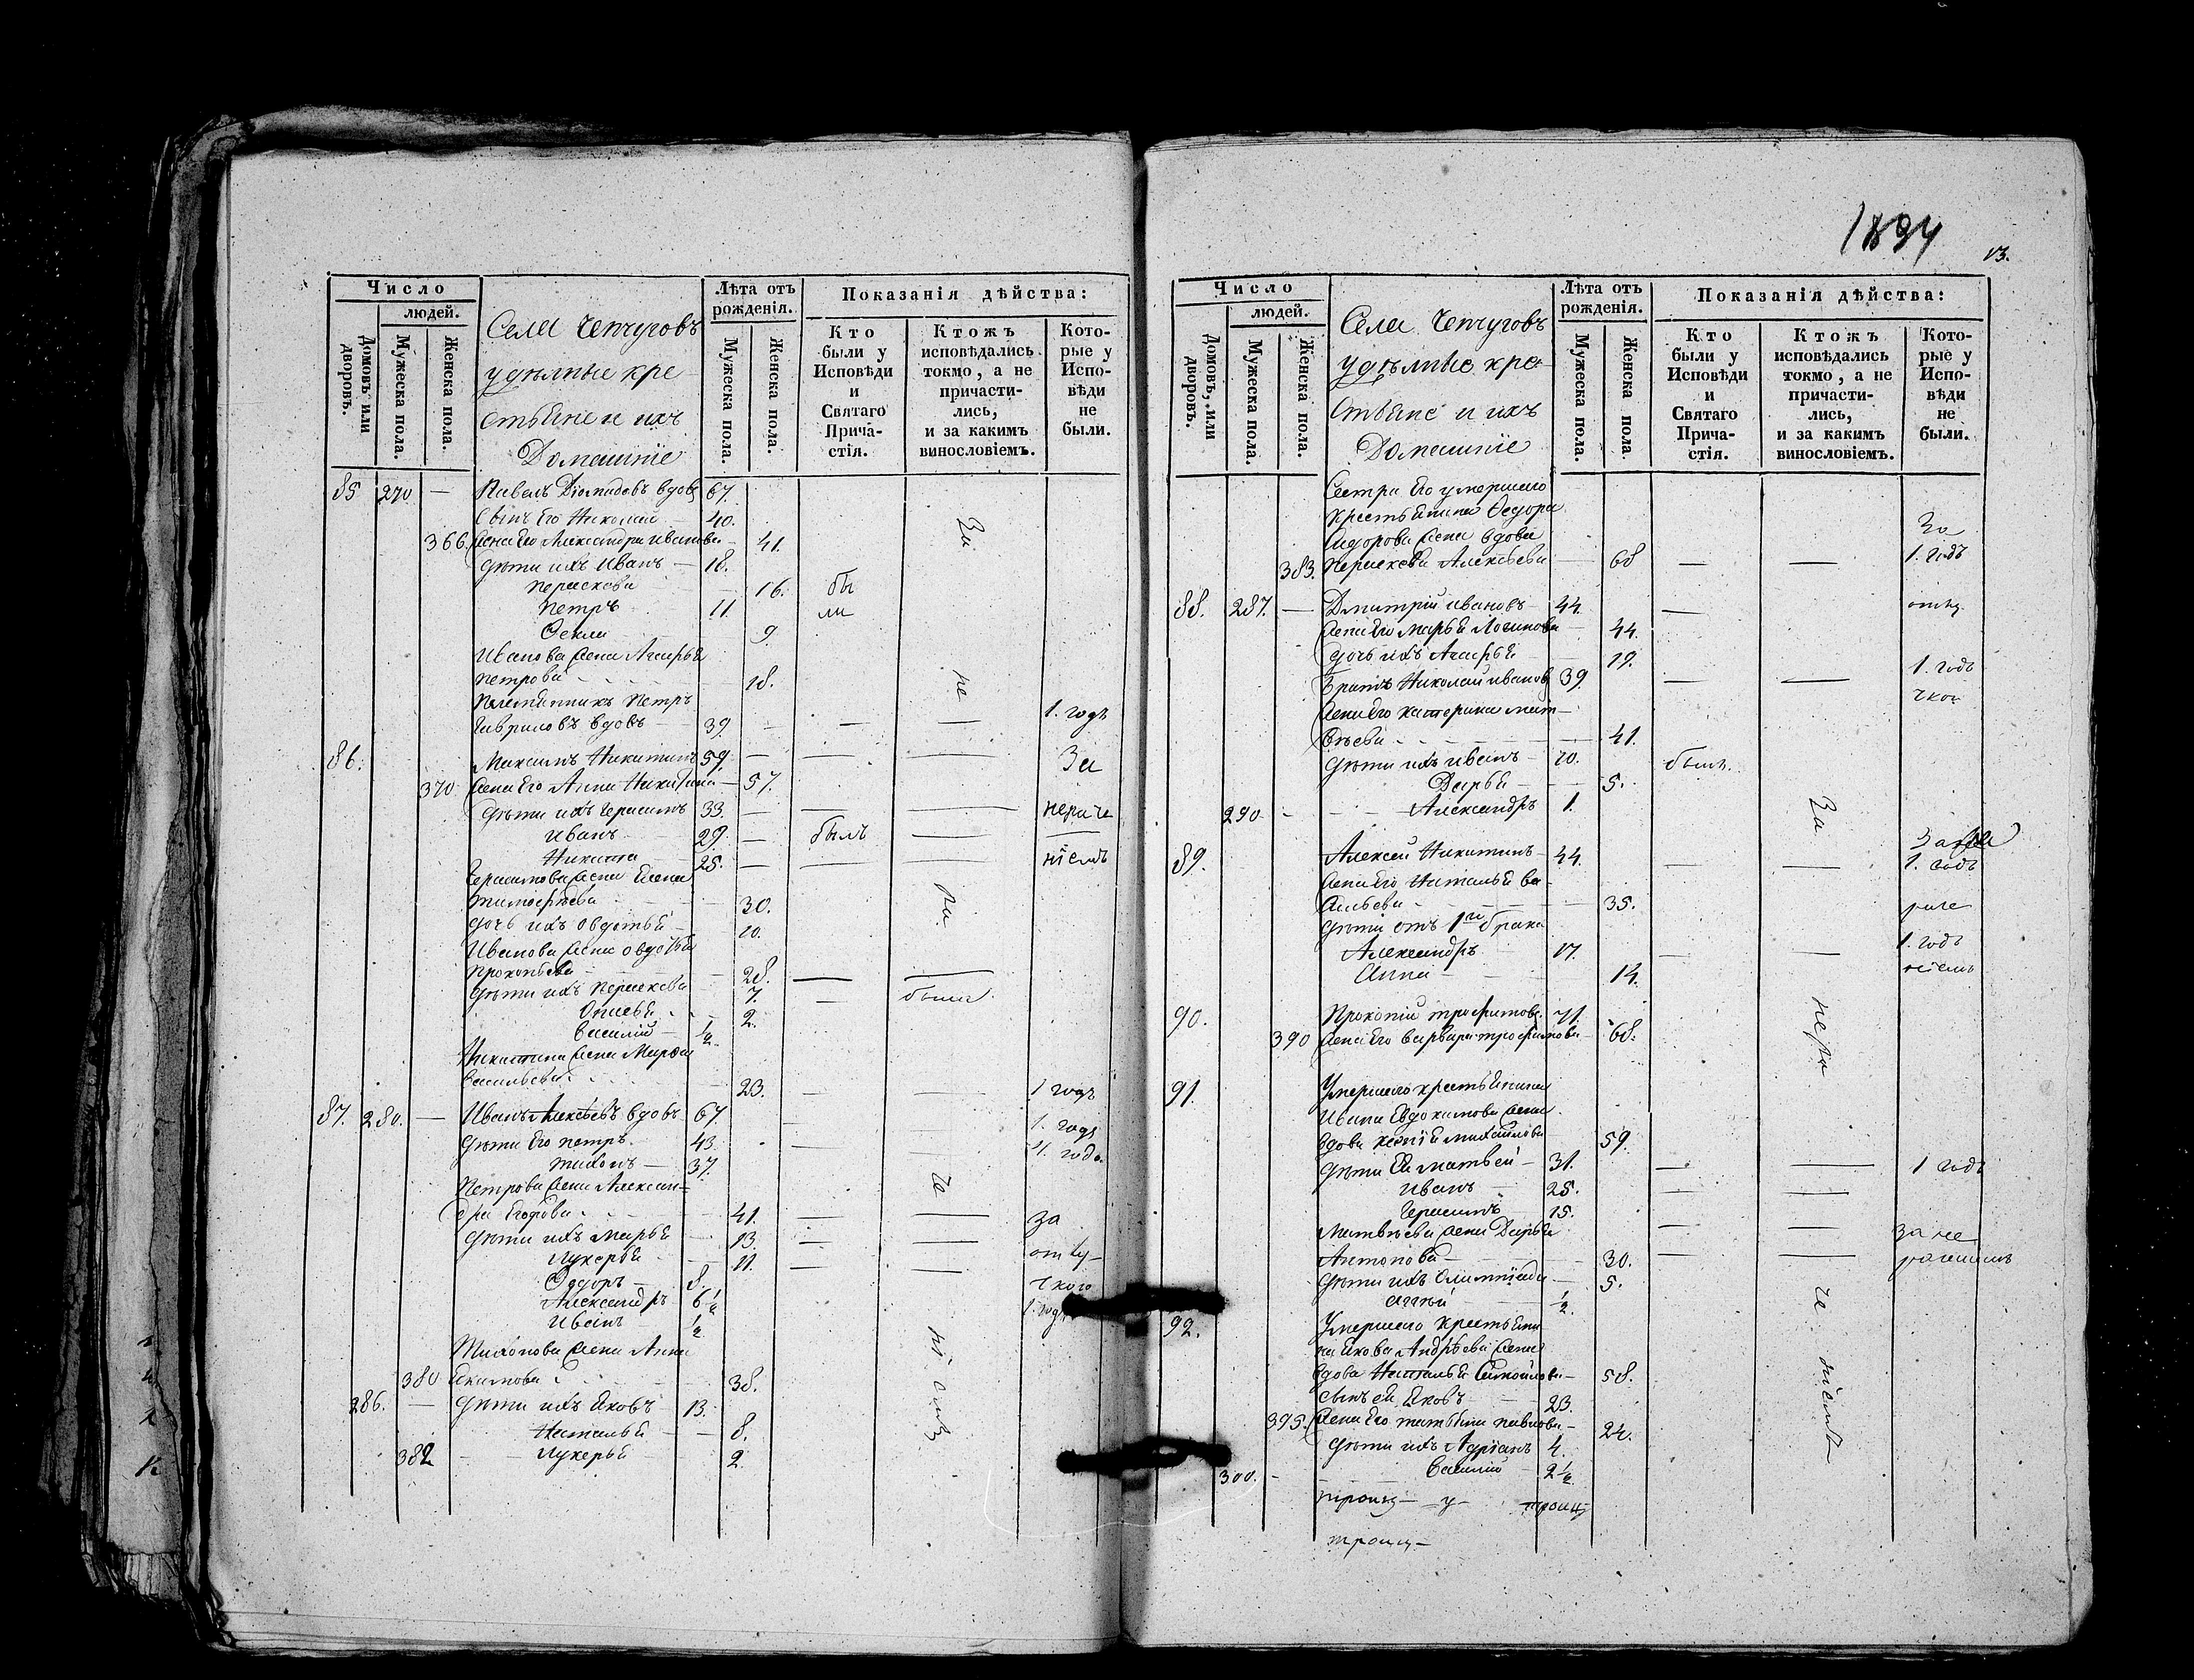 Число
людей.
Домовъ или дворовъ.
Мужеска пола.
Женска пола.
Села Чепчуговъ
удѣлные кре-
стьяне и ихъ
Домашніе
Лѣта отъ рожденія.
Мужеска пола.
Женска пола.
Показанія дѣйства:
Кто были у Исповѣди и Святаго Прича-стія.
Ктожъ исповѣдались токмо, а не причасти-лись, и за какимъ винословіемъ.
Кото-рые у Испо-вѣди не были.
85 270 — Павелъ Діомидовъ вдовъ 67.
Сынъ Его Николай 40.
366. Жена Его Александра Иванова — 41.
Дѣти ихъ Иванъ — 18.
Параскева — 16. бы
Петръ 11. ли
Ѳекла 9.
Иванова жена Агафья
Петрова 18.
Племянникъ Петръ
Гавриловъ вдовъ 39. — — — 1. годъ
86. Максимъ Никитинъ 59. — — — За
370 Жена Его Анна Никитина — 57.
Дѣти ихъ Герасимъ 33. — — — нераче
Иванъ 29. — былъ —
Никита 25. — — — ніемъ
Герасимова жена Елена
Тимофѣева 30.
Дочь ихъ Овдотья 10.
Иванова жена Овдотья
Прокопьева 28. — —
Дѣти ихъ Параскева 7. — были
Анисья 2.
Василій — ½
Никитина жена Марфа
Васильева 23. — 1 годъ
87. 280. — Иванъ Алексѣевъ вдовъ 67. — — 1. годъ
Дѣти Его Петръ 43. — — 4. года
Тихонъ — 37.
Петрова жена Алексан-
дра Егорова 41. — — за
Дѣти ихъ Марья 13. — — отлу-
Лукерья 11. — —
Ѳедоръ — 8. чкою
Александръ 6½ 1. годъ
Иванъ ½
Тихонова жена Анна
380 Екимова 38.
286. — Дѣти ихъ Яковъ 13.
Наталья — 8.
382 — Лукерья 2.
За не ра че ніемъ
1894
13.
Число
людей.
Домовъ, или дворовъ.
Мужеска пола.
Женска пола.
Села Чепчуговъ
удѣлные кре-
стьяне и ихъ
Домашніе
Лѣта отъ рожденія.
Мужеска пола.
Женска пола.
Показанія дѣйства:
Кто были у Исповѣди и Святаго Прича-стія.
Ктожъ исповѣдались токмо, а не причасти-лись, и за какимъ винословіемъ.
Кото-рые у Испо-вѣди не были.
Сестра Его умершаго
крестьянина Ѳедора За
Сидорова жена вдова
383. Параскева Алексѣева — 68 — — 1. годъ
88. 287. — Дмитрій Ивановъ 44. — отлу
Жена Его Марья Логинова — 44.
Дочь ихъ Агафья — 19. 1. годъ
Братъ Николай Ивановъ 39. — —
Жена Его Катерина Мат- чкою
вѣева 41.
Дѣти ихъ Иванъ — 10. были
Дарья — 5.
290 — Александръ 1.
89. Алексѣй Никитинъ 44. — — 1. годъ
Жена Его Наталья Ва-
сильева 35. раче
Дѣти отъ 1го брака
Александръ 17. — — 1. годъ
Анна 14. ніемъ
90. Прокопій Трофимовъ 71.
390 Жена Его Варвара Трофимова — 68.
91. Умершаго крестьянина
Ивана Евдокимова жена
вдова Ксенія Михайлова 59.
Дѣти Ея Матвей — 31. — — 1 годъ
Иванъ — 25. — —
Герасимъ 15.
Матвѣева жена Дарья — — за не
Антонова 30. — — рачениемъ
Дѣти ихъ Олимпіада 5.
Агапій ½
92. Умершаго крестьяни
на Якова Андрѣева жена
вдова Наталья Самойлова — 58.
Сынъ ея Яковъ 23.
395. Жена Его Татьяна Павлова — 24.
Дѣти ихъ Адріанъ 4.
300. — Василій 2½
За нера че ніемъ